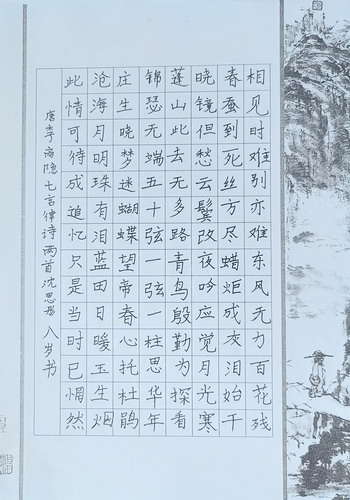 相见时难别亦难东风无力百花残
春蚕到死丝方尽蜡炬成灰泪始干
晓镜但愁云鬓改夜吟应觉月光寒
蓬山此去无多路青鸟殷勤为探看
锦瑟无端五十弦一弦一柱思华年
庄生晓梦迷蝴蝶望帝春心托杜鹃
沧海月明珠有泪蓝田日暖玉生烟
此情可待成追忆只是当时已惘然
唐李商隐七言律诗两首沈思八岁书